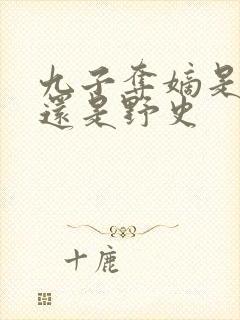 九子奪嫡是
還是野史
十鹿